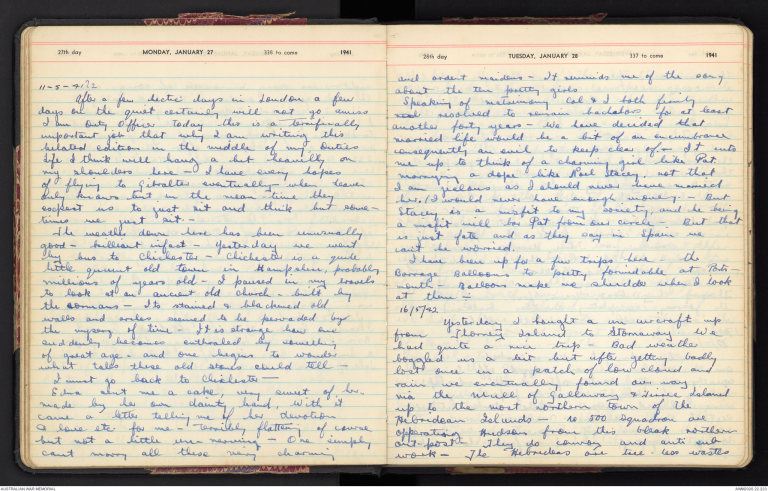 27th day MONDAY, JANUARY 27 338 to come 1941
11-5-42
After a few hectic days in London a few
days on the quiet certainly will not go amiss
I am Duty Officer today - this is a terrifically
important job that why I am writing this
belated edition in the middle of my duties
Life I think will hang a bit heavily on
my shoulders here - I have every hopes
of flying to Gibralter eventually - when heaven
only knows but in the mean time they
expect us to just sit and think but some-
times we just sit -
The weather down here has been unusually
good - brilliant infact - Yesterday we went
by bus to Chichester - Chichester is a quite
little quient old town in Hampshire, probably
millions of years old - I paused in my travels
to look at an ancient old church - built by
the Romans - Its stained & blackened old
walls and arches seemed to be pervaded by
the mystery of time - It is strange how one
suddenly becomes enthraled by something
of great age - and one begins to wonder
what tales these old stones could tell -
I must go back to Chichester -
Edna sent me a cake, very sweet of her
made by her own dainty hand, with it
came a letter telling me of her devotion
& love etc for me - terribly flattering of course
but not a little un-nerving - One simply
cant marry all these very charming
28th day TUESDAY, JANUARY 28 337 to come 1941
and ardent maidens - It reminds me of the song
about the ten pretty girls
Speaking of matrimony Col & I both firmly
resolved to remain bachelors for at least
another forty years - We have decided that
married life would be a bit of an encumbrance
consequently an evil to keep clear of - It cuts
me up to think of a charming girl like Pat
marrying a dope like Noel Stacey, not that
I am jealous as I should never have married
her, I would never have enough money - But
Stacey is a misfit to my society, and he being
a misfit will bar Pat from our circle - But that
is just fate and as they say in Spain we
cant be worried.
I have been up for a few trips here - the
Barrage Balloons to pretty formidable at Ports-
mouth - Balloons make me shudder when I look
at them -
16/5/42
Yesterday I bought a an aircraft up
from Thorney Island to Stornaway We
had quite a nice trip - Bad weather
boggled us a bit but after getting badly
lost once in a patch of low cloud and
rain we eventually found our way
via the Mull of Gallaway & Tiree Island
up to the most northern town of the
Hebridean Islands - 500 Squadron are
operating Hudson from this bleak northern
out-post - They do convoy and anti sub
work - The Hebrideas are tree-less wastes
AUSTRALIAN WAR MEMORIAL